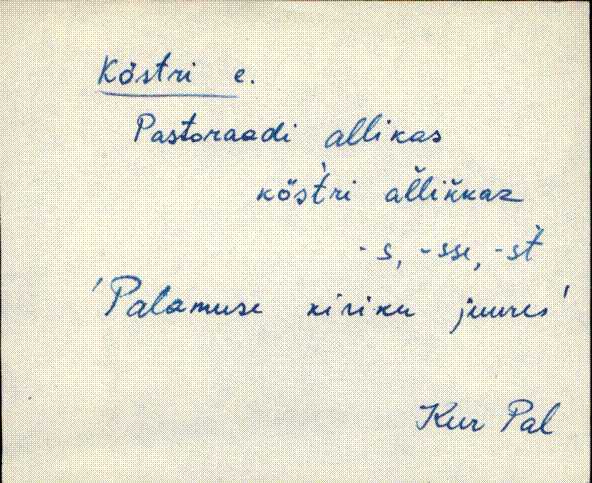 Köstri e.
Pastoraadi allikas
kös̀t́ri al̆lik̆kaz
-s, -sse, -st̀
'Palamuse kiriku juures'
Kur Pal